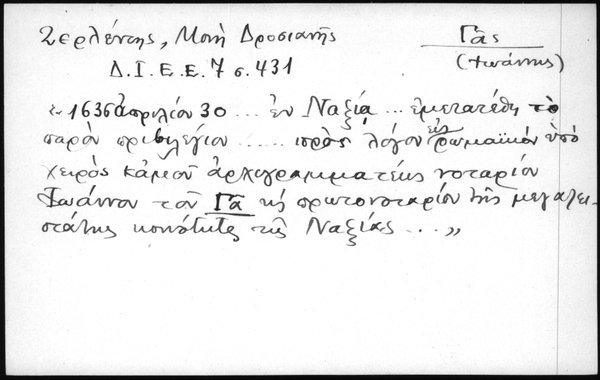 Ζερλέντης, Μονὴ Δροσιανῆς
Γᾶς
Δ.Ι.Ε.Ε. 7 σ. 431
(Ἰωάννης)
« 1636 ἀπριλίου 30 ... ἐν Ναξίᾳ ... ἐμετατέθη τὸ
παρὸν πριβιλέγιον ..... πρὸς λόγον εἰς ῥωμαϊκὸν ὑπὸ
χειρὸς κἀμοῦ ἀρχιγραμματέως νοταρίου
Ἰωάννου τοῦ Γᾶ κὴ πρωτονοταρίου τῆς μεγαλει-
τάτης κοινότητος τῆς Ναξίας ... »